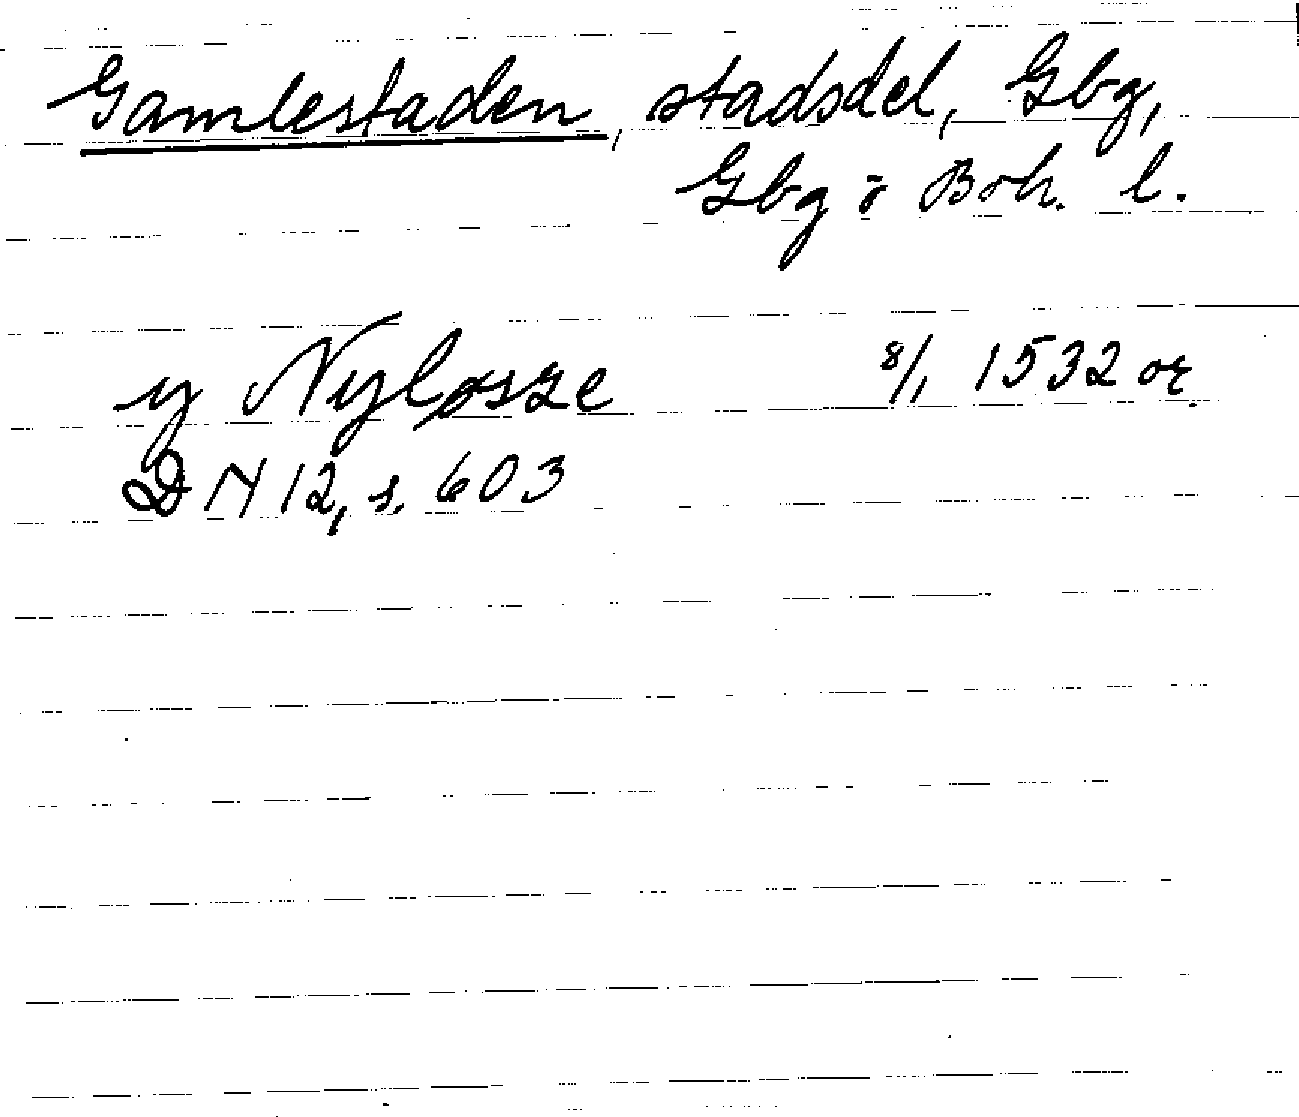 Gamlestaden, stadsdel, Gbg,
Gbg o Boh. l.
y Nyløsze 8/1 1532 or.
DN 12, s. 603